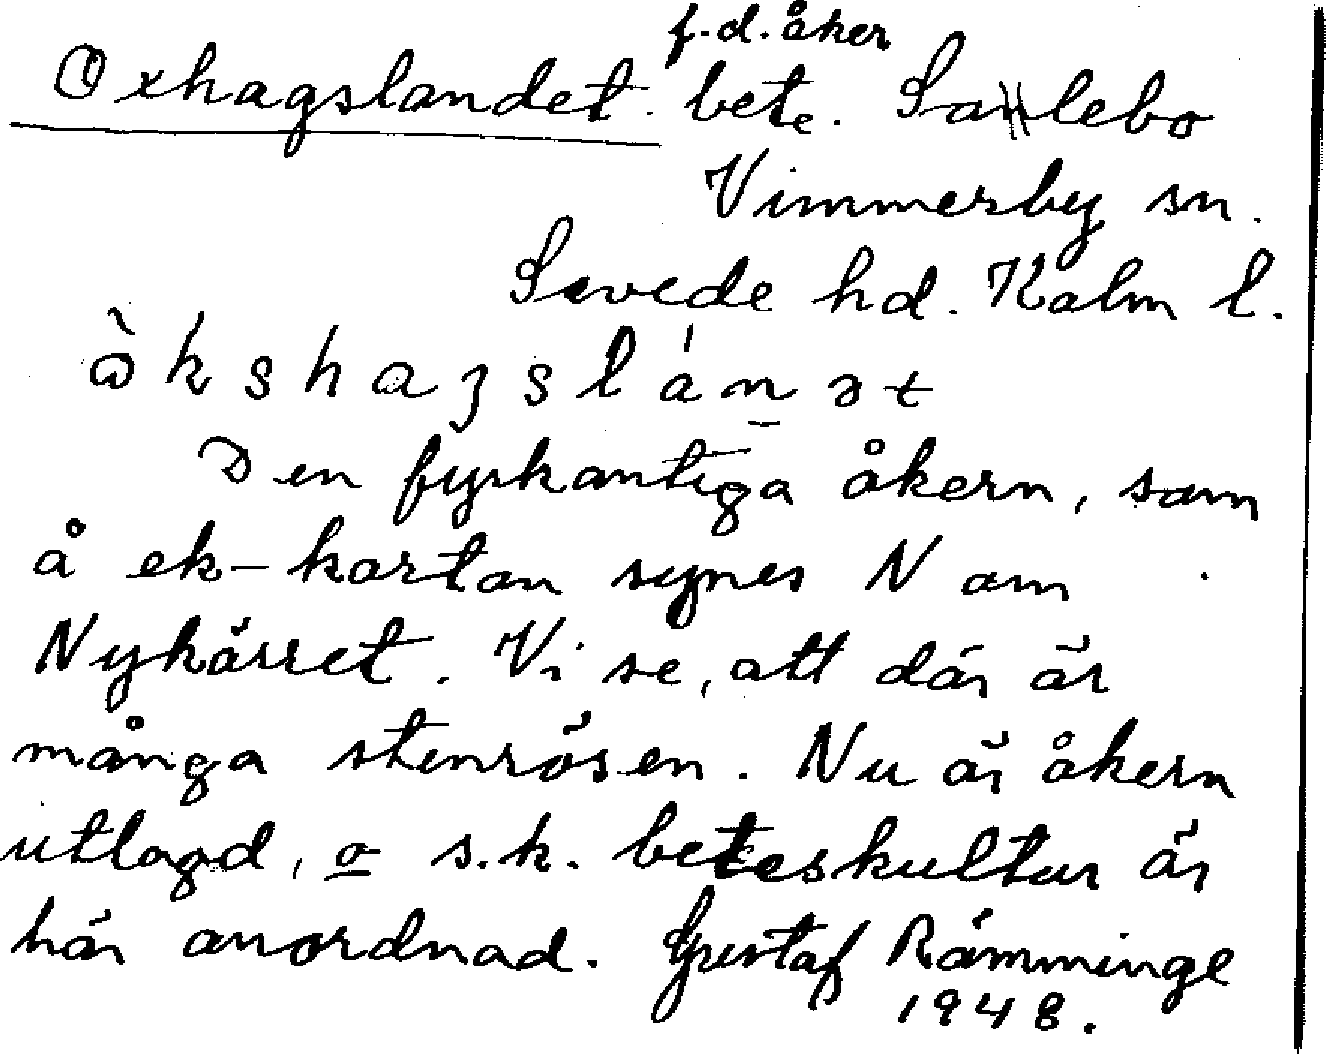 f.d. åker
Oxhagslandet. bete. Sanlebo
Vimmerby sn.
Sevede hd. Kalm l.
Den fyrkantiga åkern, som
å ek-kartan synes N om
Nykärret. Vi se, att där är
många stenrösen. Nu är åkern
utlagd, o s.k. beteskultur är
här anordnad. Gustaf Rämminge
1948.